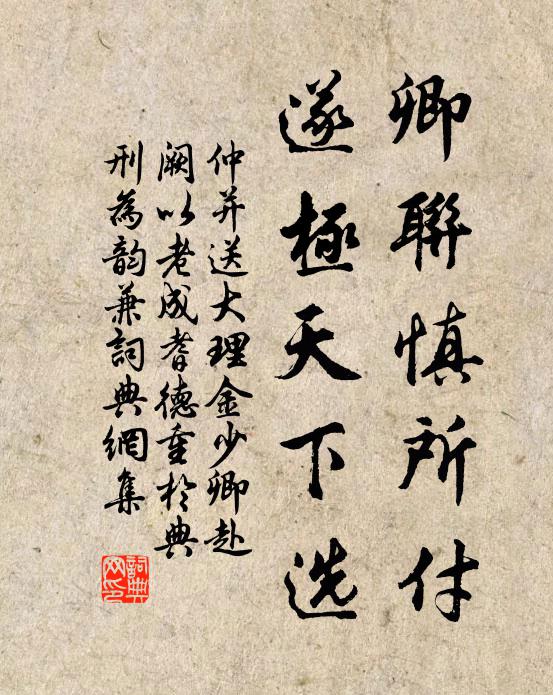 卿聯慎所付
遂極天下选
仲并送大理金少卿赴
阙以老成耆德重於典
刑為韵兼詞典網集
詞典
网印